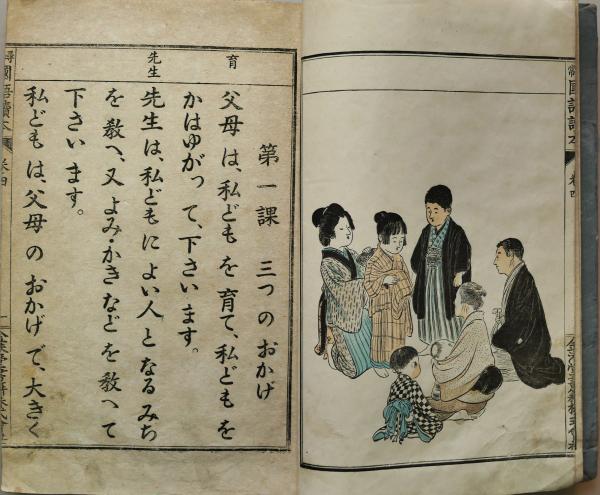 國語讀本
卷四
育
先生
第一課 三つのおかげ
父母は、私どもを育て、私どもを
かはゆがって、下さいます。
先生は、私どもによい人となるみち
を敎へ、又よみ・かきなどを敎へて
下さいます。
私どもは、父母のおかげで、大きく
國語讀本
卷四
一